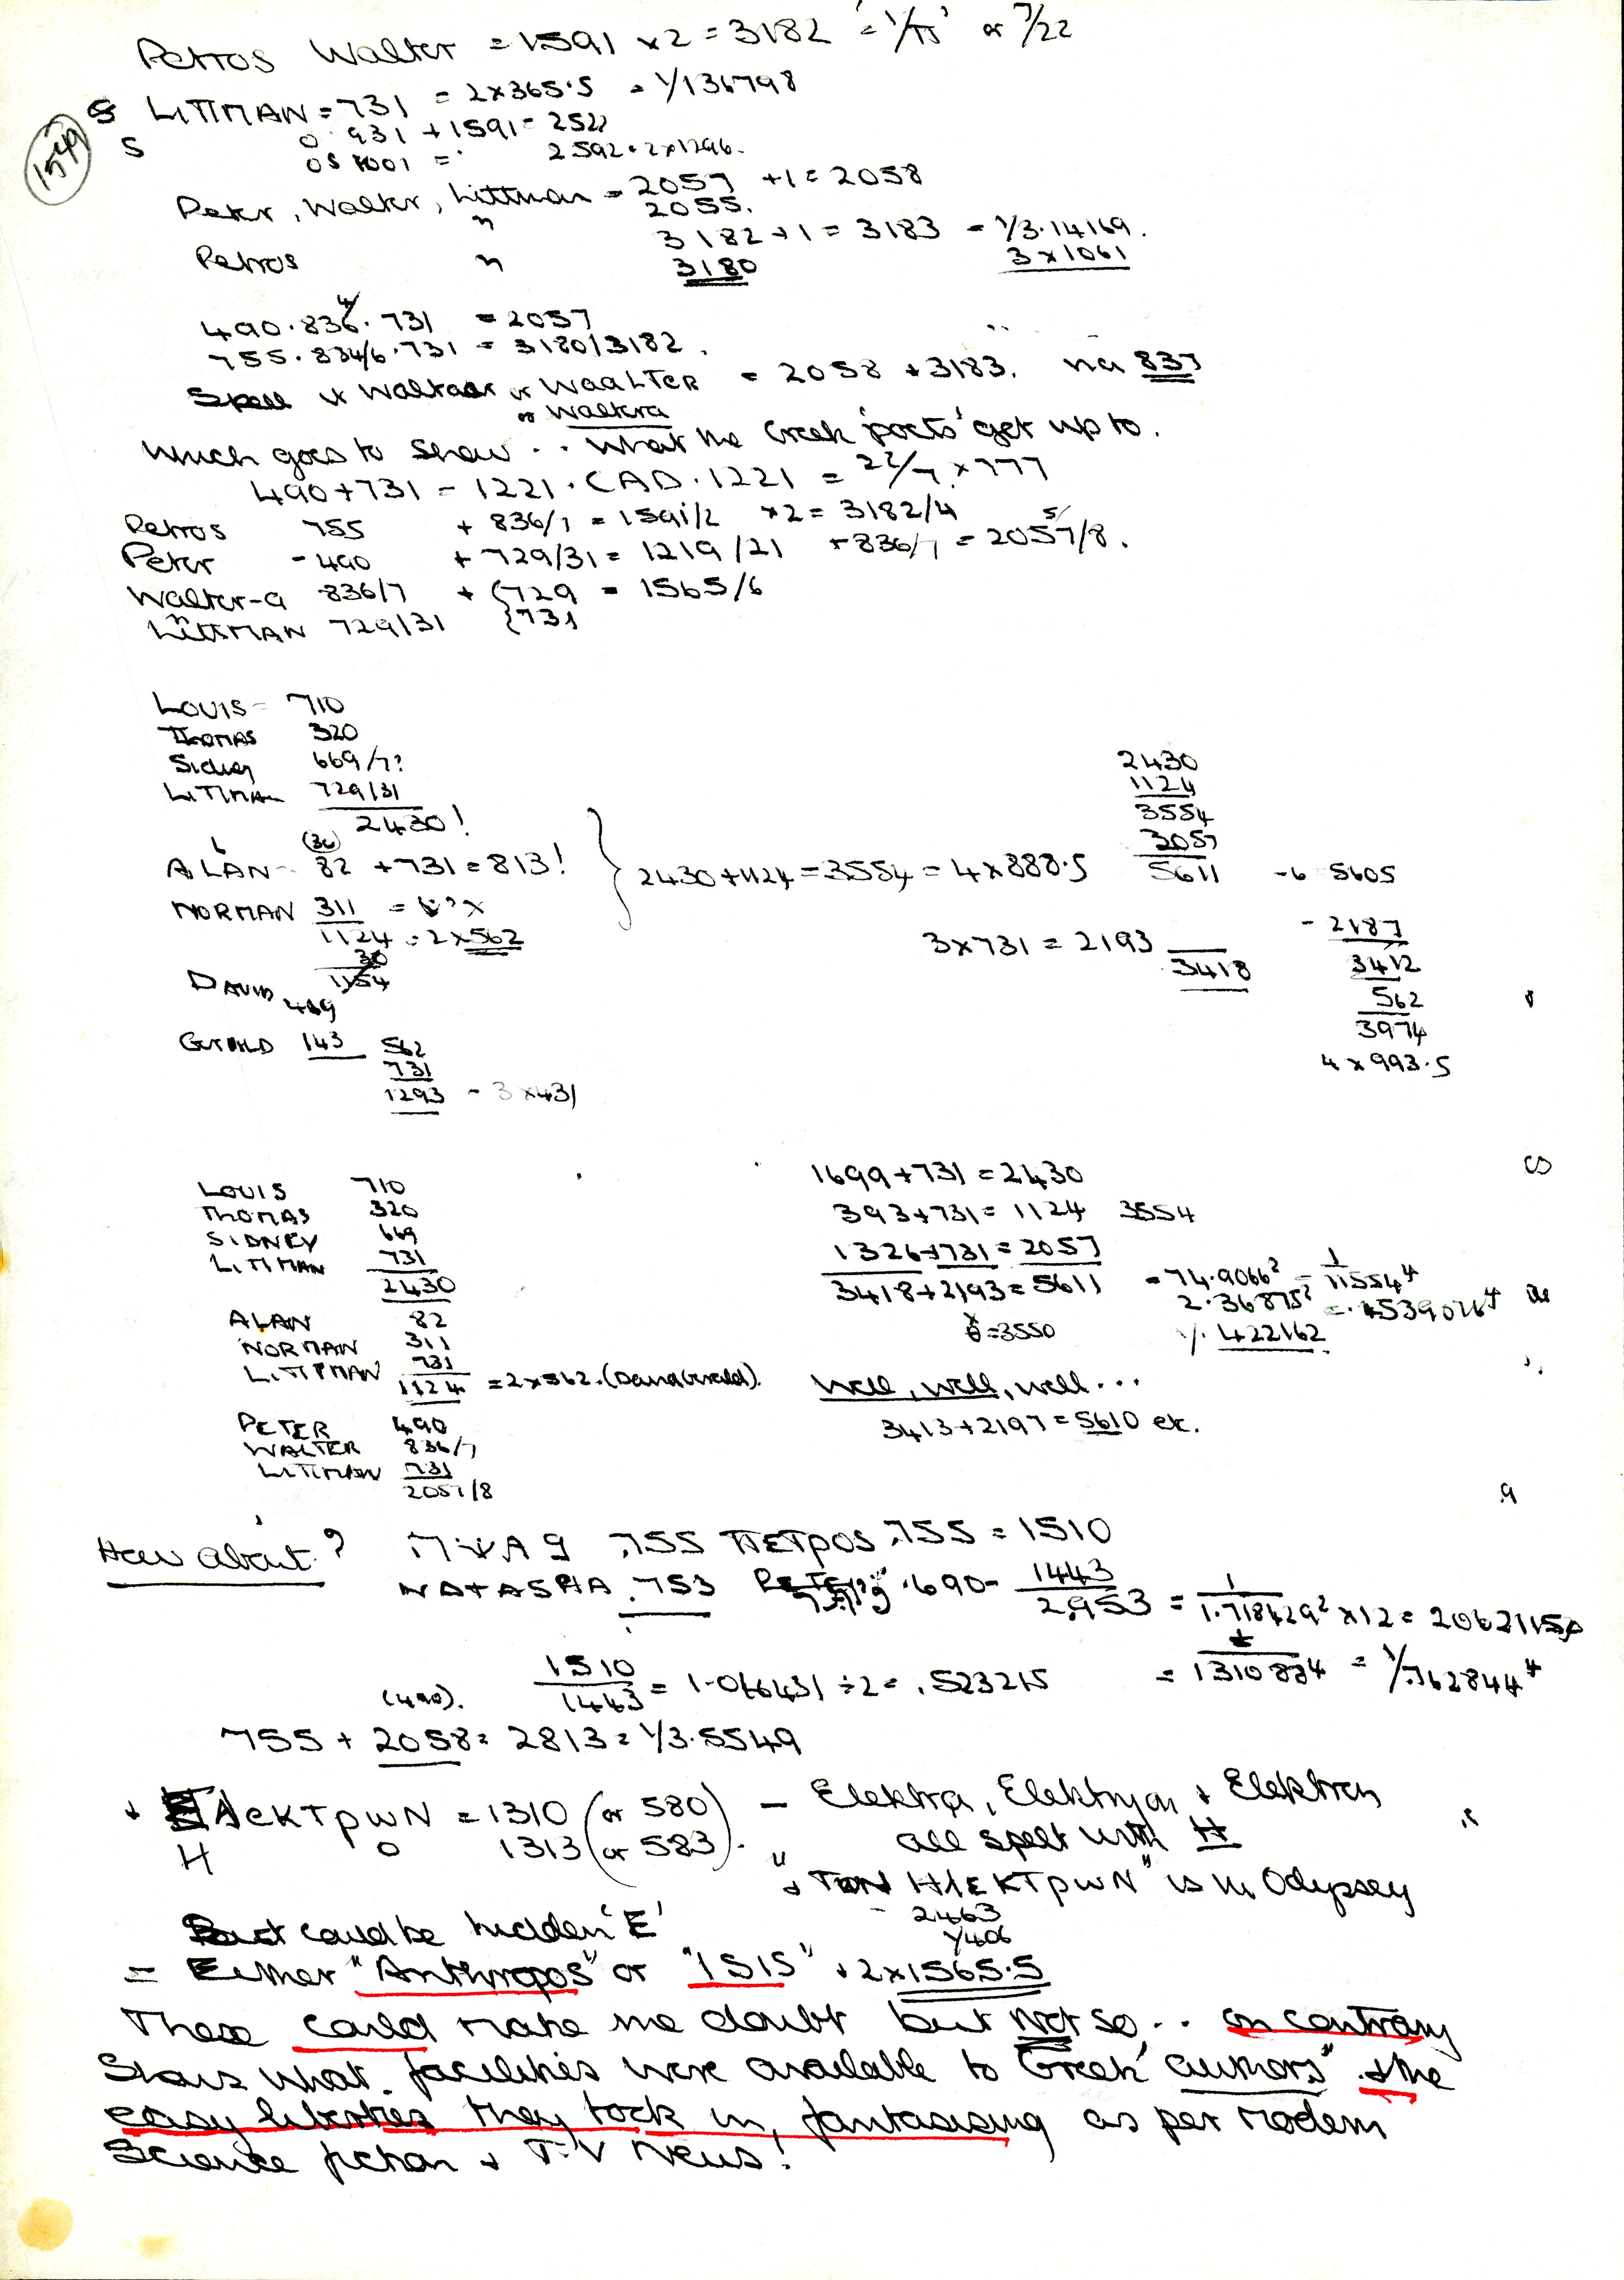 Petros Walter = 1591 x 2 = 3182 '= 1/π' or 7/22
1549
S LITTMAN = 731 = 2 x 365.5 = 1/136798
O 931 + 1591 = 2522
S OS 1001 = 2592 = 2 x 1296.
Peter, Walter, Littman = 2057 + 1 = 2058
" 2055.
3182 + 1 = 3183 = 1/3.14169.
Petros " 3180 3 x 1061
490 . 836 . 731 = 2057
755 . 834/6 . 731 = 3180/3182.
or WAALTER = 2058 + 3183. 837
or Waltera
Which goes to show .. What the Greek 'poets' get up to.
490 + 731 = 1221 . CAD . 1221 = 22/7 x 777
Petros 755 + 836/7 = 1591/2 x 2 = 3182/4
Peter - 490 + 729/31 = 1219/21 + 836/7 = 2057/8.
Walter-a 836/7 + { 729 = 1565/6
LITTMAN 729/31 { 731
LOUIS - 710
THOMAS 320
Sidney 669/7?
LITTMAN 729/31
2430!
(36)
ALAN - 82 + 731 = 813!
NORMAN 311
1124 = 2 x 562
30
1154
DAVID 419
GERALD 143 562
731
1293 = 3 x 431
2430 + 1124 = 3554 = 4 x 888.5
2430
1124
3554
2057
5611 - 6 5605
3 x 731 = 2193
3418
- 2187
3412
562
3974
4 x 993.5
LOUIS 710
THOMAS 320
SIDNEY 669
LITTMAN 731
2430
ALAN 82
NORMAN 311
LITTMAN 731
1124 = 2 x 562. (David Gerald).
PETER 490
WALTER 836/7
LITTMAN 731
2057/8
1699 + 731 = 2430
393 + 731 = 1124 3554
1326 + 731 = 2057
3418 + 2193 = 5611 = 74.9066²
2.36875²
= 3550 1/.422162
Well, well, well...
3413 + 2197 = 5610 etc.
How about? 755 ΠΕΤΡΟΣ 755 = 1510
NATASHA 753 690 - 1443
2953 = 1/1.718429² x 12 = 
1510/1443 = 1.046431 ÷ 2 = .523215
(490).
755 + 2058 = 2813 = 1/3.5549
+ ΛΕΚΤρωΝ = 1310 (or 580) - Elektra, Elektryon + Elektron
H O 1313 (or 583). all spelt with H
"+ ΤωΝ ΗΛΕΚΤρωΝ" is in Odyssey
- 2463
1/406
But could be hidden 'E'
= Either "Anthropos" or "ISIS" + 2 x 1565.5
These could make me doubt but Not so .. on contrary
Shows what facilities were available to Greek "authors" + the
easy liberties they took in, fantasising as per modern
Science fiction + T.V News!